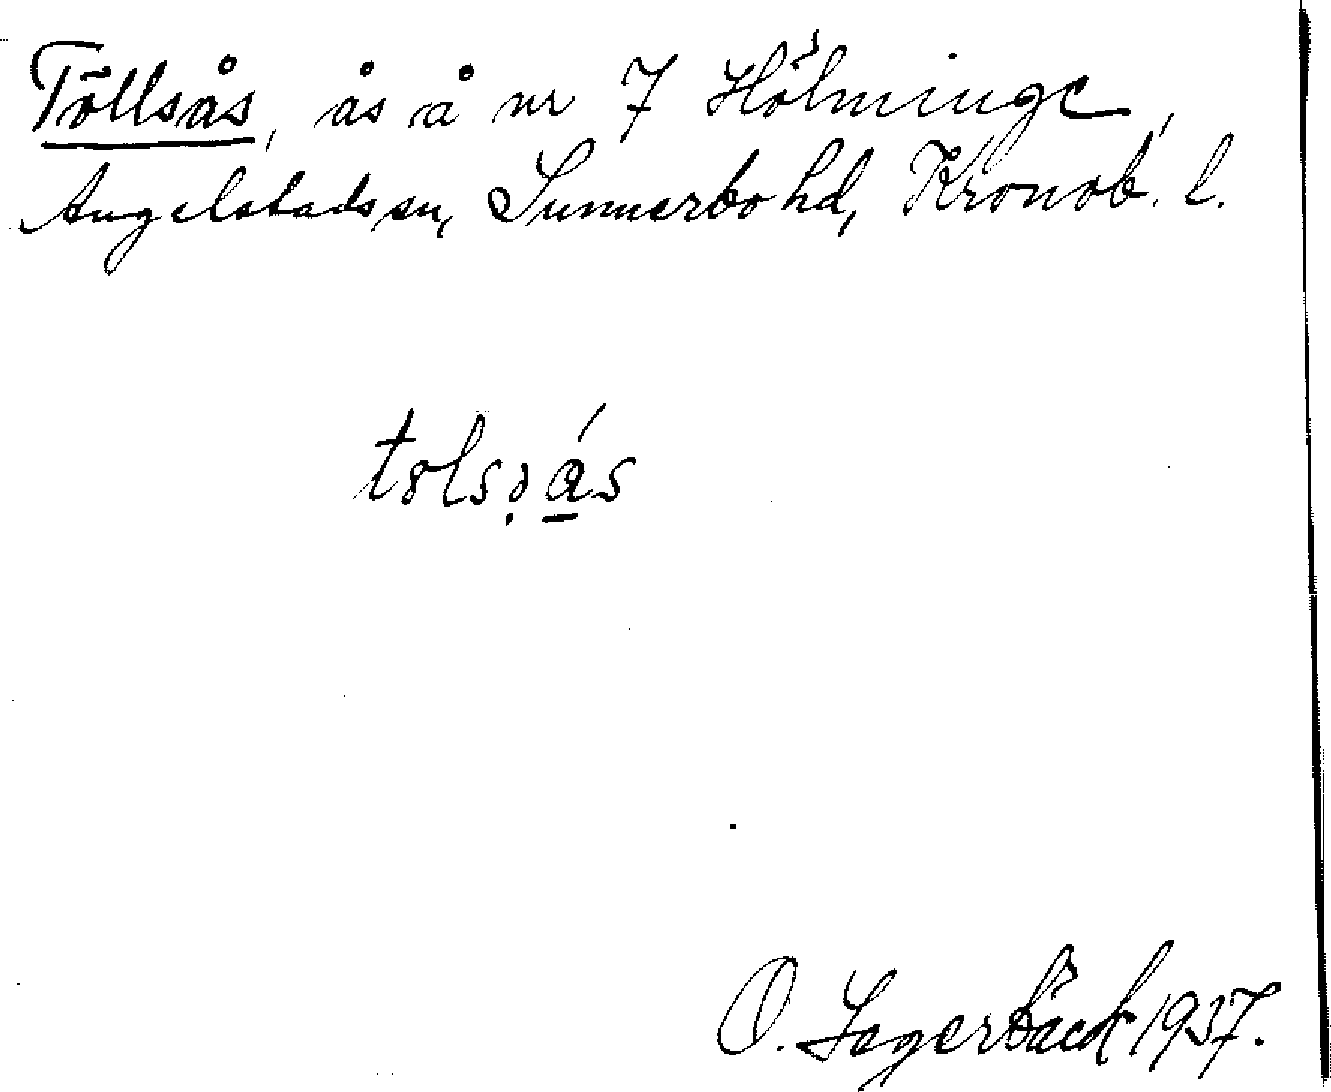 Töllsås, ås å nr 7 Hölminge,
Angelstads sn, Sunnerbo hd, Kronob. l.
O. Lagerbäck 1937.